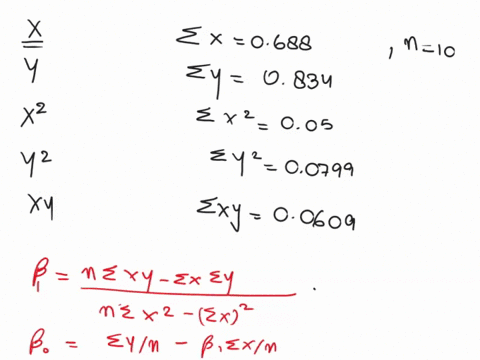 X Σx = 0.688 , n=10
Y Σy = 0.834
X² Σx² = 0.05
Y² ΣY² = 0.0799
XY Σxy = 0.0609
β₁ = nΣxy - Σx Σy / nΣx² - (Σx)² .
β₀ = ΣY/n - β₁Σx/n